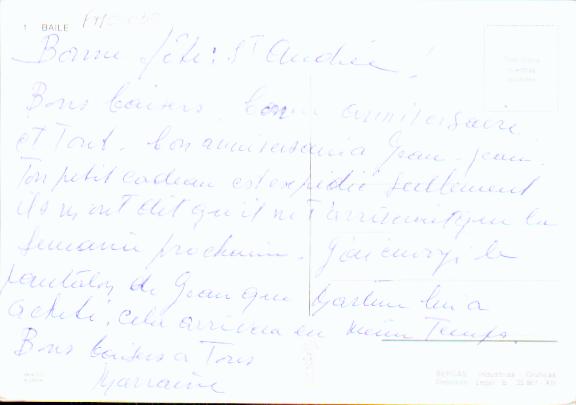 1 BAILE
Bonne fête: St Andrée!
Bons baisers, bon anniversaire
et Tout. bon anniversaire a Jean-Jean.
Ton petit cadeau est expédié seullement
ils m'ont dit qu'il ne t'arriverait que la
semaine prochaine. J'ai envoyé le
pantalon de Jean que Martine lui a
acheté, cela arrivera en même Temps.
Bons baisers a Tous
Marraine